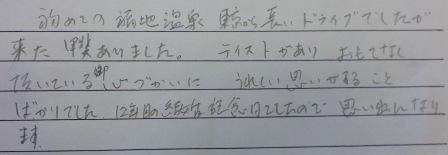 初めての福地温泉 東京から長いドライブでしたが
来た甲斐ありました。テイストがあり おもてなし
頂いている御心づかいに うれしい思いがすること
ばかりでした 12年目の結婚記念日でしたので 思い出になり
ます